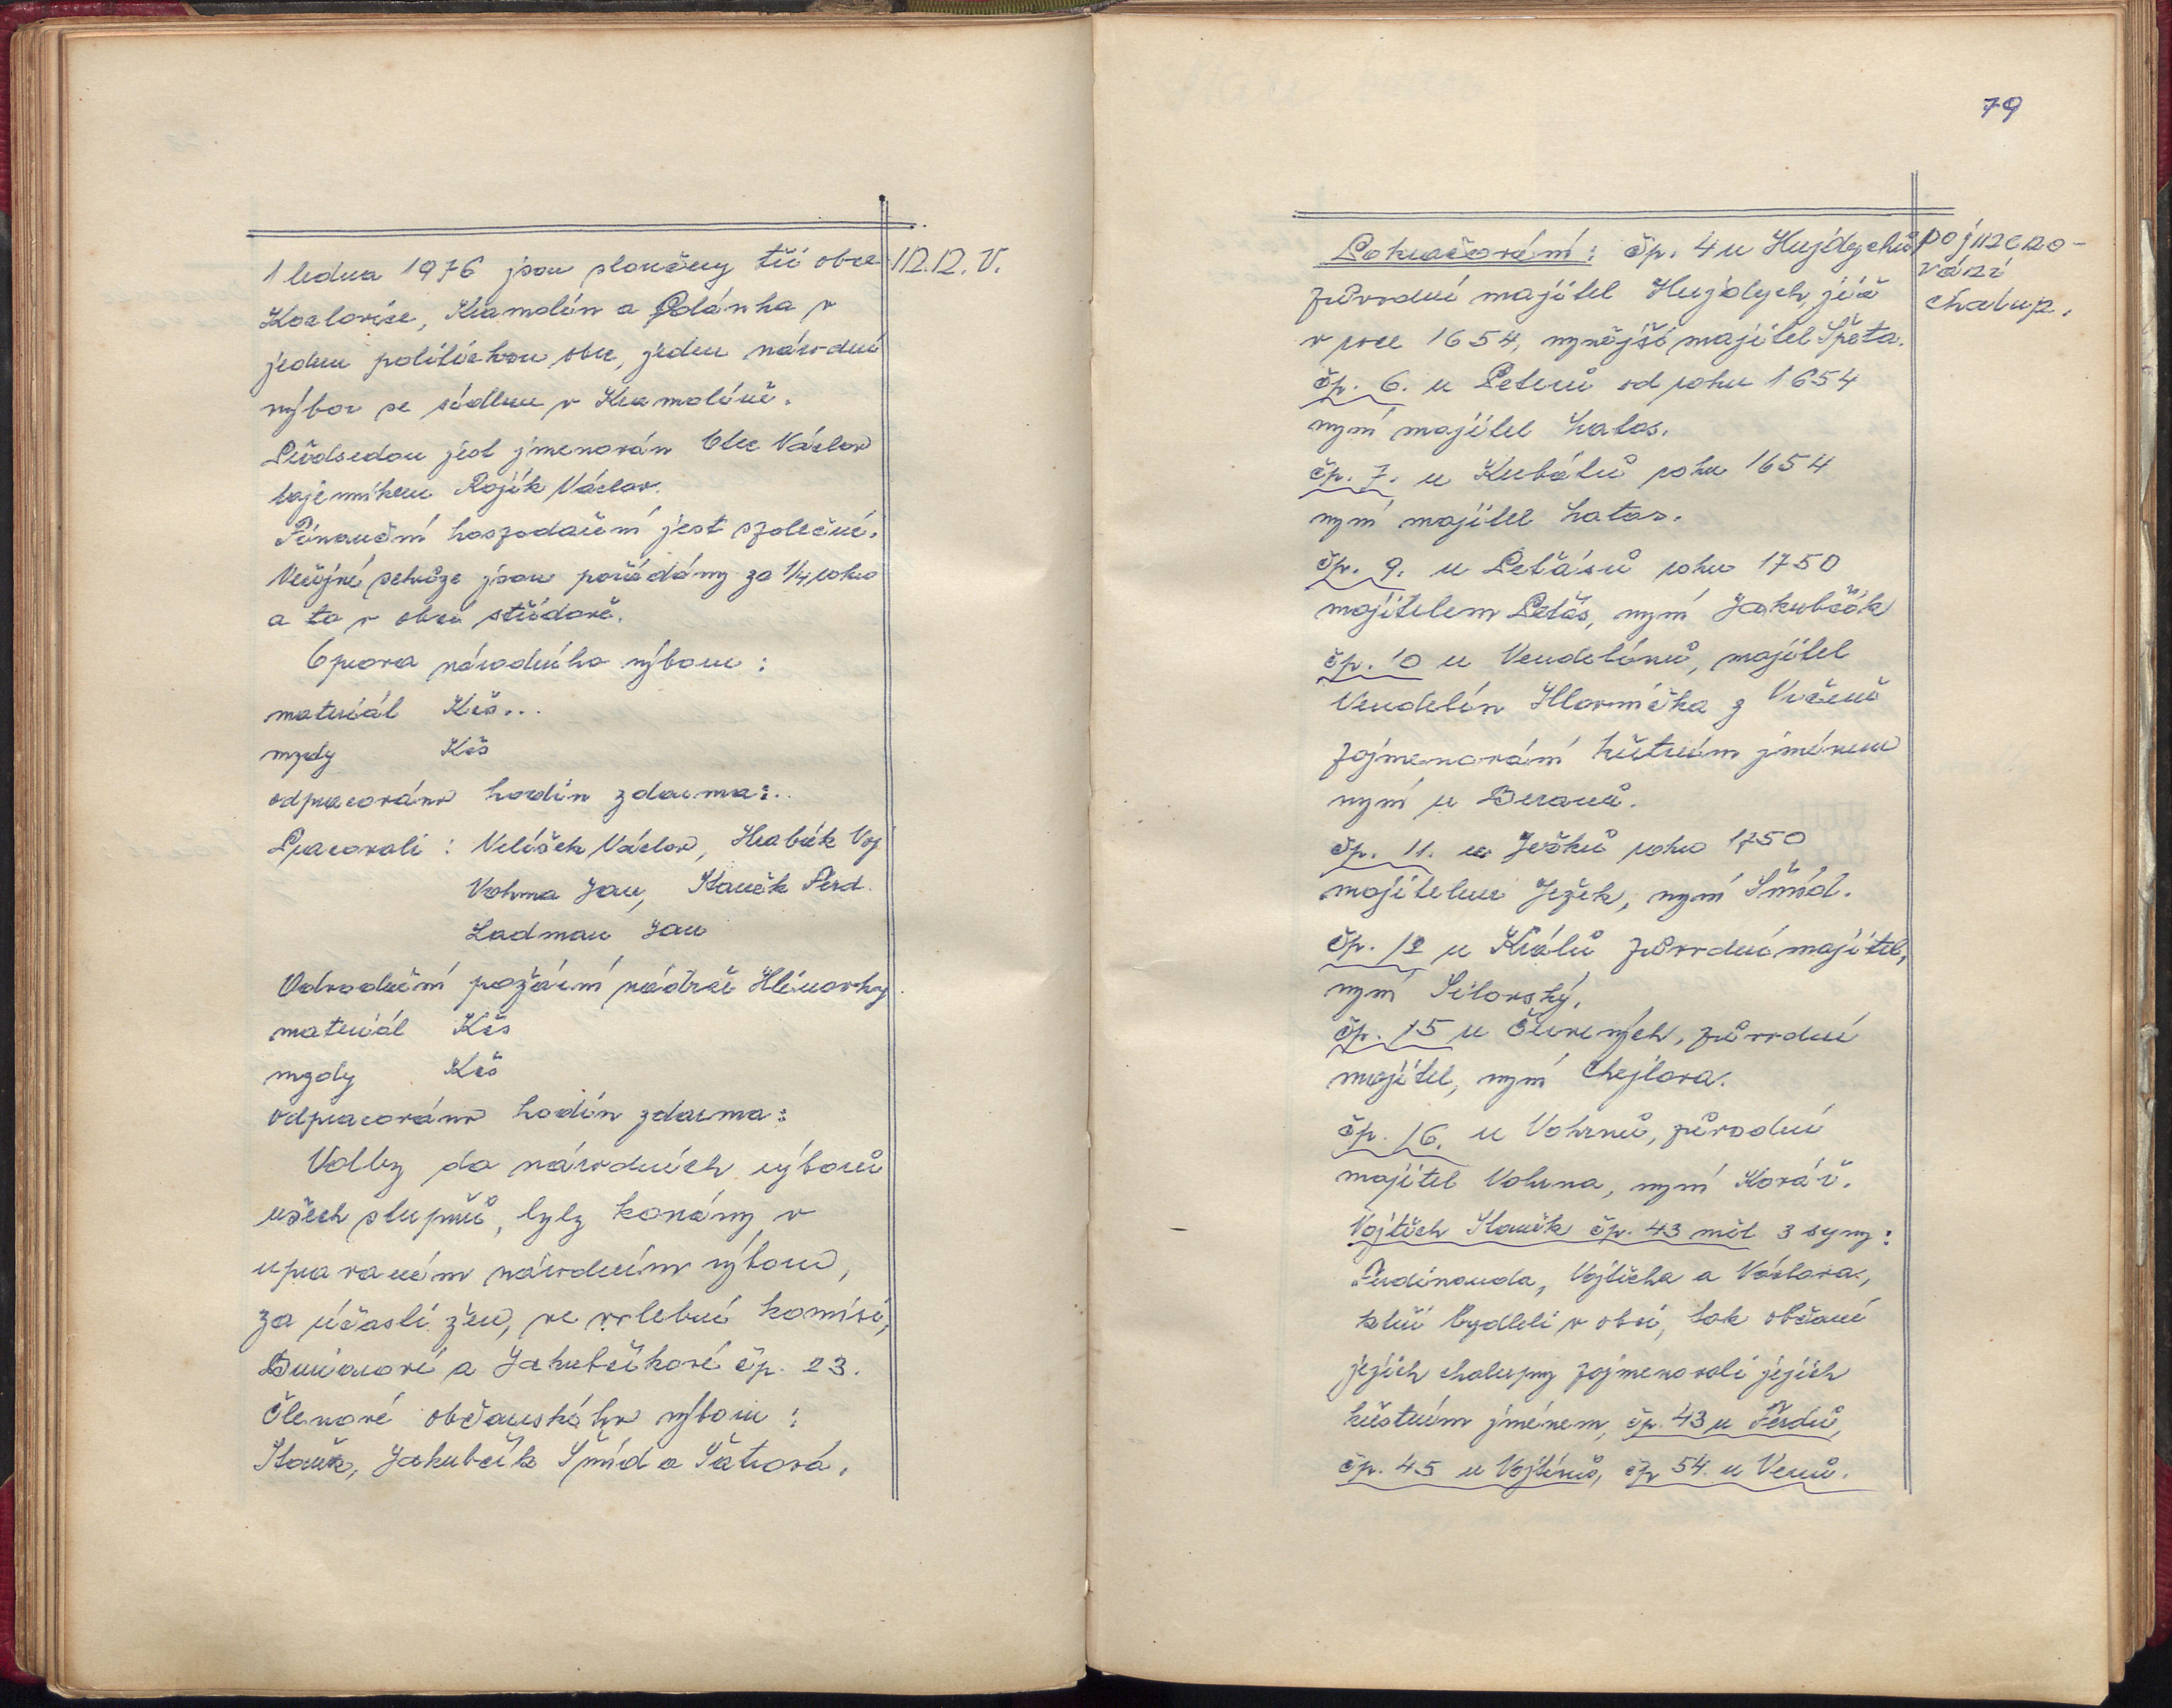 1 ledna 1976 jsou sloučeny tři obce
M.N.V.
Kozlovice, Kramolín a Polánka v
jednu politickou obec, jeden národní
výbor se sídlem v Kramolíně.
Předsedou jest jmenován Otec Václav
tajemníkem Rojík Václav.
Finanční hospodaření jest společné.
Veřejné schůze jsou pořádány za 1/4 roku
a to v obci střídavě.
Oprava národního výboru :
materiál Kčs...
mzdy Kčs
odpracováno hodin zdarma:..
Pracovali : Velíšek Václav, Hrabík Voj
Vohrna Jan, Slaněk Ferd.
Ladman Jan
Odvodnění požární nádrže Hlinovky
materiál Kčs
mzdy Kčs
odpracováno hodin zdarma:
Volby do národních výborů
všech stupňů, byly konány v
upraveném národním výboru,
za účasti žen, ve volební komisi,
a Jakubčíkové čp. 23.
Členové občanského výboru :
Jakubčík Šmíd a Šátrová.
79
Pokračování: čp. 4 u Hujdychů,
pojmeno-
vání
chalup.
původní majitel Hujdych již
v roce 1654, nynější majitel Špeta.
čp. 6. u Peterů od roku 1654
nyní majitel Latos.
čp. 7. u Kubátů roku 1654
nyní majitel Latos.
čp. 9. u Petásů roku 1750
majitelem Petás, nyní Jakubčík
čp. 10 u Vendelínů, majitel
Vendelín Hlavnička z Vrčeně
pojmenování křestním jménem
nyní u Beranů.
čp. 11. u Ježků roku 1750
majitelem Ježek, nyní Šmíd.
čp. 12 u Králů původní majitel,
nyní Silovský.
čp. 15 u Červených, původní
majitel, nyní Chejlava.
čp. 16. u Vohrnů, původní
majitel Vohrna, nyní Kovář.
Vojtěch Slaněk čp. 43 měl 3 syny:
Ferdinanda, Vojtěcha a Václava,
kteří bydleli v obci, tak občané
jejich chalupy pojmenovali jejich
křestním jménem, čp. 43 u Ferdů,
čp. 45 u Vojtínů, čp 54. u Venů.